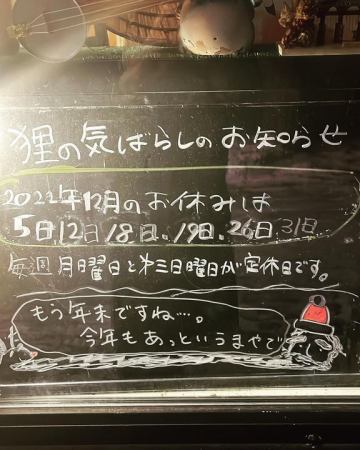 狸の気ばらしのお知らせ
2022年12月のお休みは
5日,12日,18日、19日、26日,31日
毎週 月曜日と第三日曜日が定休日です。
もう年末ですね…。
今年もあっというまやで